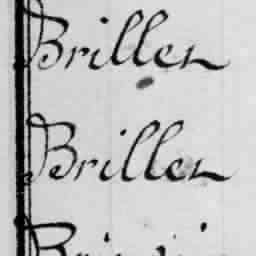 Briller
Briller